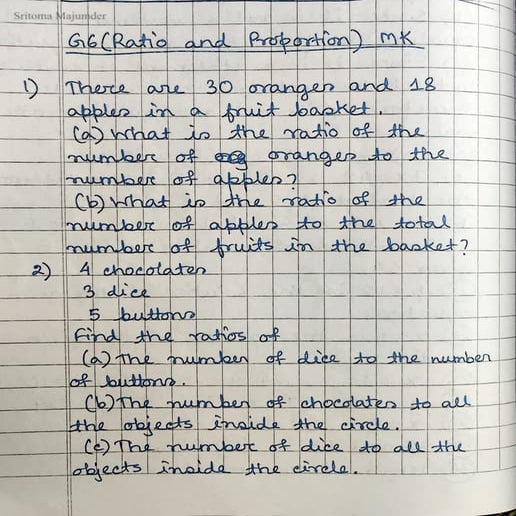 Sritoma Majumder
G6 (Ratio and Proportion) MK
1) There are 30 oranges and 18
apples in a fruit basket.
(a) What is the ratio of the
number of oranges to the
number of apples?
(b) What is the ratio of the
number of apples to the total
number of fruits in the basket?
2) 4 chocolates
3 dice
5 buttons
Find the ratios of
(a) The number of dice to the number
of buttons.
(b) The number of chocolates to all
the objects inside the circle.
(c) The number of dice to all the
objects inside the circle.